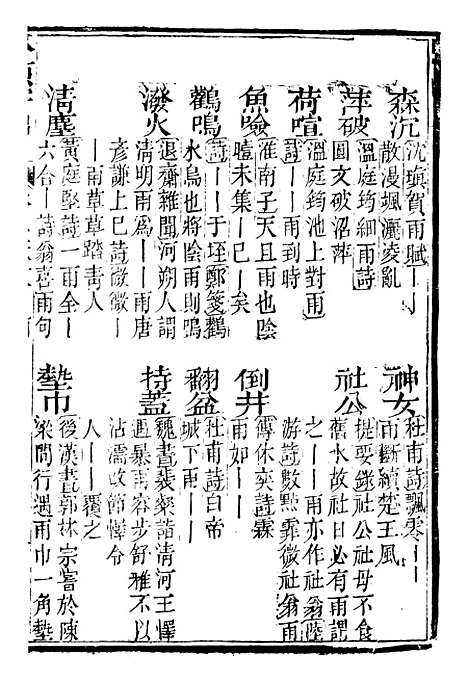 森沉
沈瓊賀雨賦——
散漫颯灑凌亂
萍破
溫庭筠細雨詩
圓文破沼萍
荷喧
溫庭筠池上對雨
詩——雨到時
魚噞
淮南子天且雨也陰
曀未集——已——矣
鸛鳴
詩——于垤鄭箋鸛
水鳥也將陰雨則鳴
潑火
退齋雜聞河朔人謂
清明雨爲——雨唐
彥謙上巳詩微微—
—雨草草踏青人
清塵
黃庭堅詩一雨全—
六合—詩翁喜雨句
神女
杜甫詩飄零——
雨斷續楚王風
社公
提要錄社公社母不食
舊水故社日必有雨謂
之——雨亦作社翁陸
游詩數點霏微社翁雨
倒井
傅休奕詩霖
雨如——
翻盆
杜甫詩白帝
城下雨——
持蓋
魏書裴粲詣清河王懌
遇暴雨容步舒雅不以
沾濡改節懌令
人——覆之
墊巾
後漢書郭林宗嘗於陳
梁間行遇雨巾一角墊